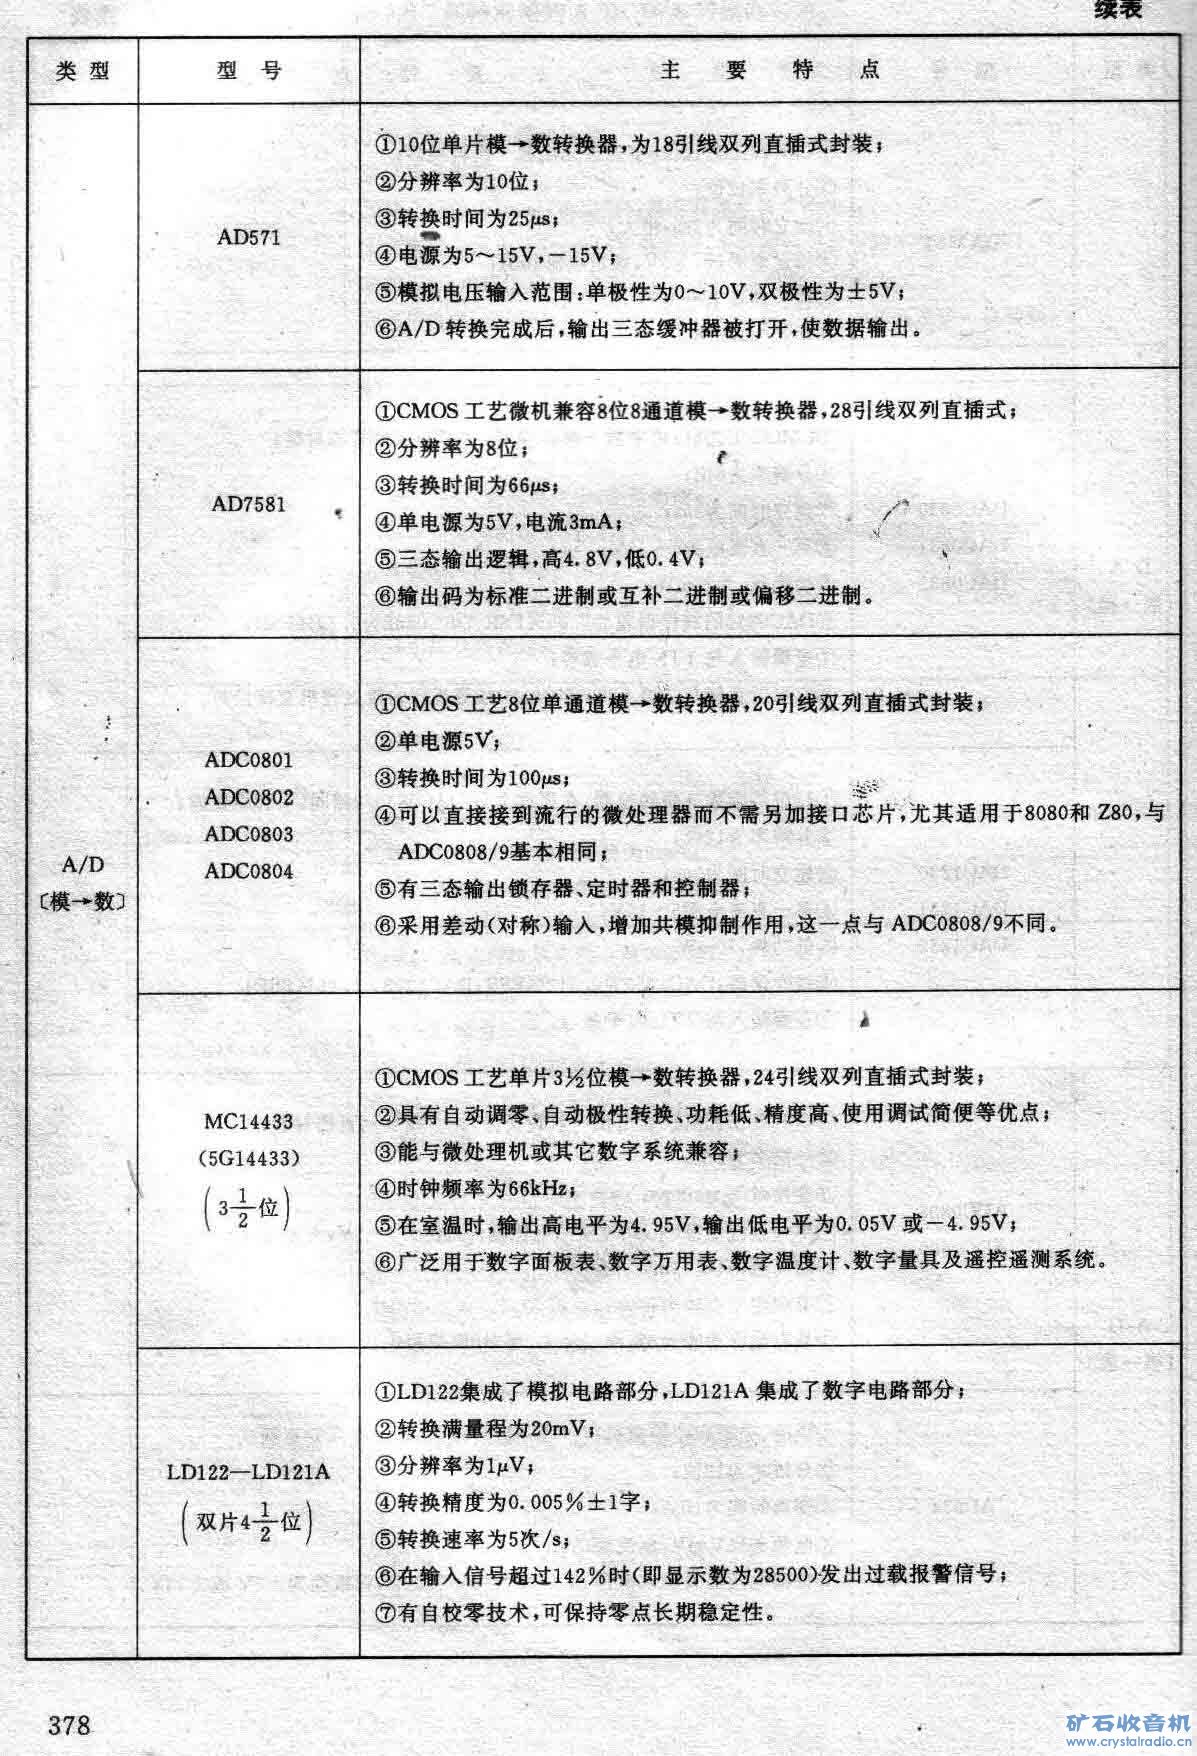 续表
类型 型号 主要特点
A/D
〔模→数〕
AD571
①10位单片模→数转换器,为18引线双列直插式封装;
②分辨率为10位;
③转换时间为25μs;
④电源为5~15V,-15V;
⑤模拟电压输入范围:单极性为0~10V,双极性为±5V;
⑥A/D 转换完成后,输出三态缓冲器被打开,使数据输出。
AD7581
①CMOS 工艺微机兼容8位8通道模→数转换器,28引线双列直插式;
②分辨率为8位;
③转换时间为66μs;
④单电源为5V,电流3mA;
⑤三态输出逻辑,高4.8V,低0.4V;
⑥输出码为标准二进制或互补二进制或偏移二进制。
ADC0801
ADC0802
ADC0803
ADC0804
①CMOS 工艺8位单通道模→数转换器,20引线双列直插式封装;
②单电源5V;
③转换时间为100μs;
④可以直接接到流行的微处理器而不需另加接口芯片,尤其适用于8080和 Z80,与
ADC0808/9基本相同;
⑤有三态输出锁存器、定时器和控制器;
⑥采用差动(对称)输入,增加共模抑制作用,这一点与 ADC0808/9不同。
MC14433
(5G14433)
(3 1/2 位)
①CMOS 工艺单片3½位模→数转换器,24引线双列直插式封装;
②具有自动调零、自动极性转换、功耗低、精度高、使用调试简便等优点;
③能与微处理机或其它数字系统兼容;
④时钟频率为66kHz;
⑤在室温时,输出高电平为4.95V,输出低电平为0.05V 或-4.95V;
⑥广泛用于数字面板表、数字万用表、数字温度计、数字量具及遥控遥测系统。
LD122—LD121A
(双片4 1/2 位)
①LD122集成了模拟电路部分,LD121A 集成了数字电路部分;
②转换满量程为20mV;
③分辨率为1μV;
④转换精度为0.005%±1字;
⑤转换速率为5次/s;
⑥在输入信号超过142%时(即显示数为28500)发出过载报警信号;
⑦有自校零技术,可保持零点长期稳定性。
378
矿石收音机
www.crystalradio.cn